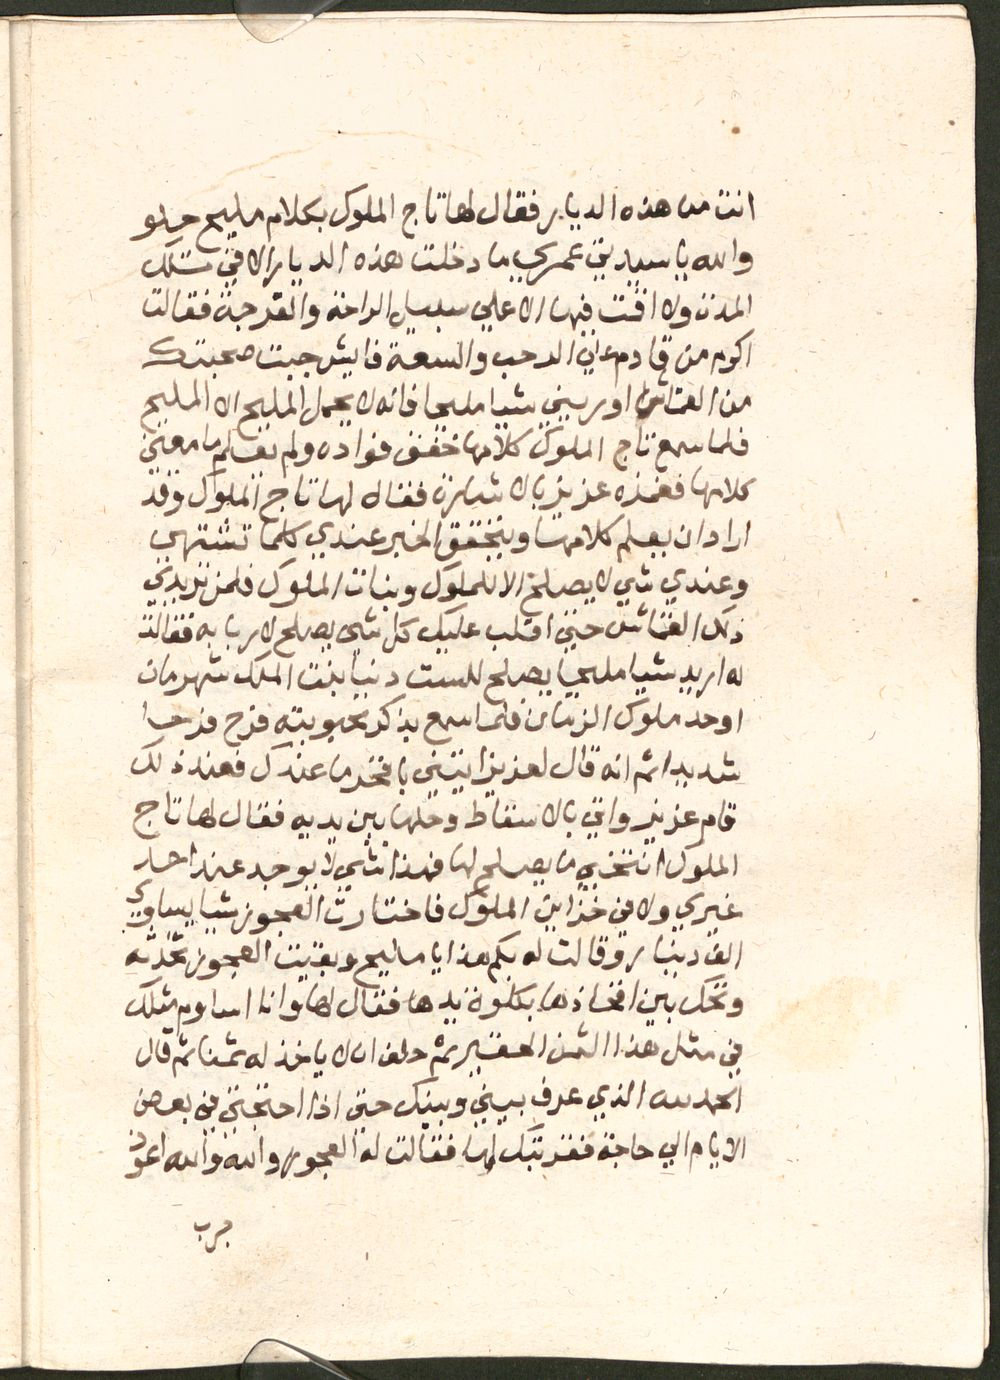 انت من هذه الديار فقال لها تاج الملوك بكلام مليح حلو
والله يا سيدتي عمري ما دخلت هذه الديار الا في تلك
المدة ولا اقمت فيها الا علي سبيل الراحة والفرجة فقالت
اكرم من قادم علي الرحب والسعة فايش جبت صحبتك
من القماش اوريني شيا مليحا فانه لا يحمل المليح الا المليح
فلما سمع تاج الملوك كلامها خفق فواده ولم يعلم ما معني
كلامها فغمزه عزيز بالاشارة فقال لها تاج الملوك وقد
اراد ان يعلم كلامها ويتحقق الخبر عندي كلما تشتهي
وعندي شي لا يصلح الا للملوك وبنات الملوك فلمن تريدي
ذلك القماش حتي اقلب عليك كل شي يصلح لاربابه فقالت
له اريد شيا مليحا يصلح للست دنيا بنت الملك شهرمان
اوحد ملوك الزمان فلما سمع بذكر محبوبته فرح فرحا
شديدا ثم انه قال لعزيز ايتيني بافخر ما عندك فعند ذلك
قام عزيز واتي بالاسقاط وحلها بين يديه فقال لها تاج
الملوك انتخبي ما يصلح لها فهذا شي لا يوجد عند احد
غيري ولا في خزاين الملوك فاختارت العجوز شيا يساوي
الف دينار وقالت له بكم هذا يا مليح وبقيت العجوز تحدثه
وتحك بين افخاذها بكلوة يدها فقال لها وانا اساوم مثلك
في مثل هذا الثمن الحقير ثم حلف ان لا ياخذ له ثمنا ثم قال
الحمد لله الذي عرف بيني وبينك حتي اذا احتجتي في بعض
الايام الي حاجة فقربتك لها فقالت له العجوز والله والله اعوذ
برب